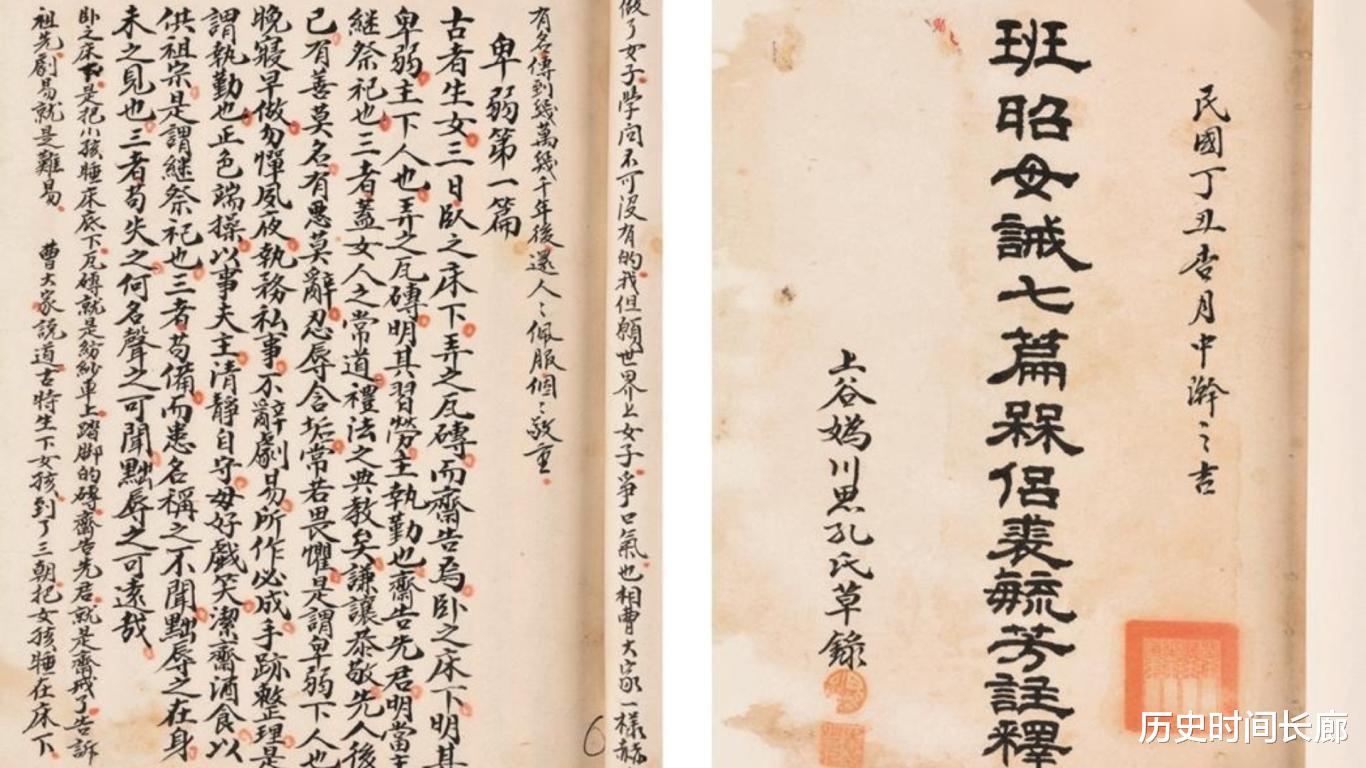 民國丁丑杏月中澣之吉
班昭女誡七篇槑侶裘毓芳註釋
上谷媯川思孔氏草錄
做了女子學问不可沒有的我但願世界上女子爭口氣也相曹大家一樣赫
有名傳到幾萬幾千年後還人〻佩服個〻敬重
卑弱第一篇
古者生女三日臥之床下弄之瓦磚而齋告焉臥之床下明其
卑弱主下人也弄之瓦磚明其習勞主執勤也齋告先君明當主
繼祭祀也三者蓋女人之常道禮法之典教矣謙讓恭敬先人後
己有善莫名有惡莫辭忍辱含垢常若畏懼是謂卑弱下人也
晚寢早做勿憚夙夜執務私事不辭劇易所作必成手跡整理是
謂執勤也正色端操以事夫主清靜自守毋好戲笑潔齋酒食以
供祖宗是謂繼祭祀也三者苟備而患名稱之不聞黜辱之在身
未之見也三者苟失之何名聲之可聞黜辱之可遠哉
卧之床下是把小孩睡床底下瓦磚就是紡紗車上踏脚的磚齋告先君就是齋戒了告訴
祖先劇易就是難易 曹大家説道古時生下女孩到了三朝把女孩睡在床下
6
历史时间长廊